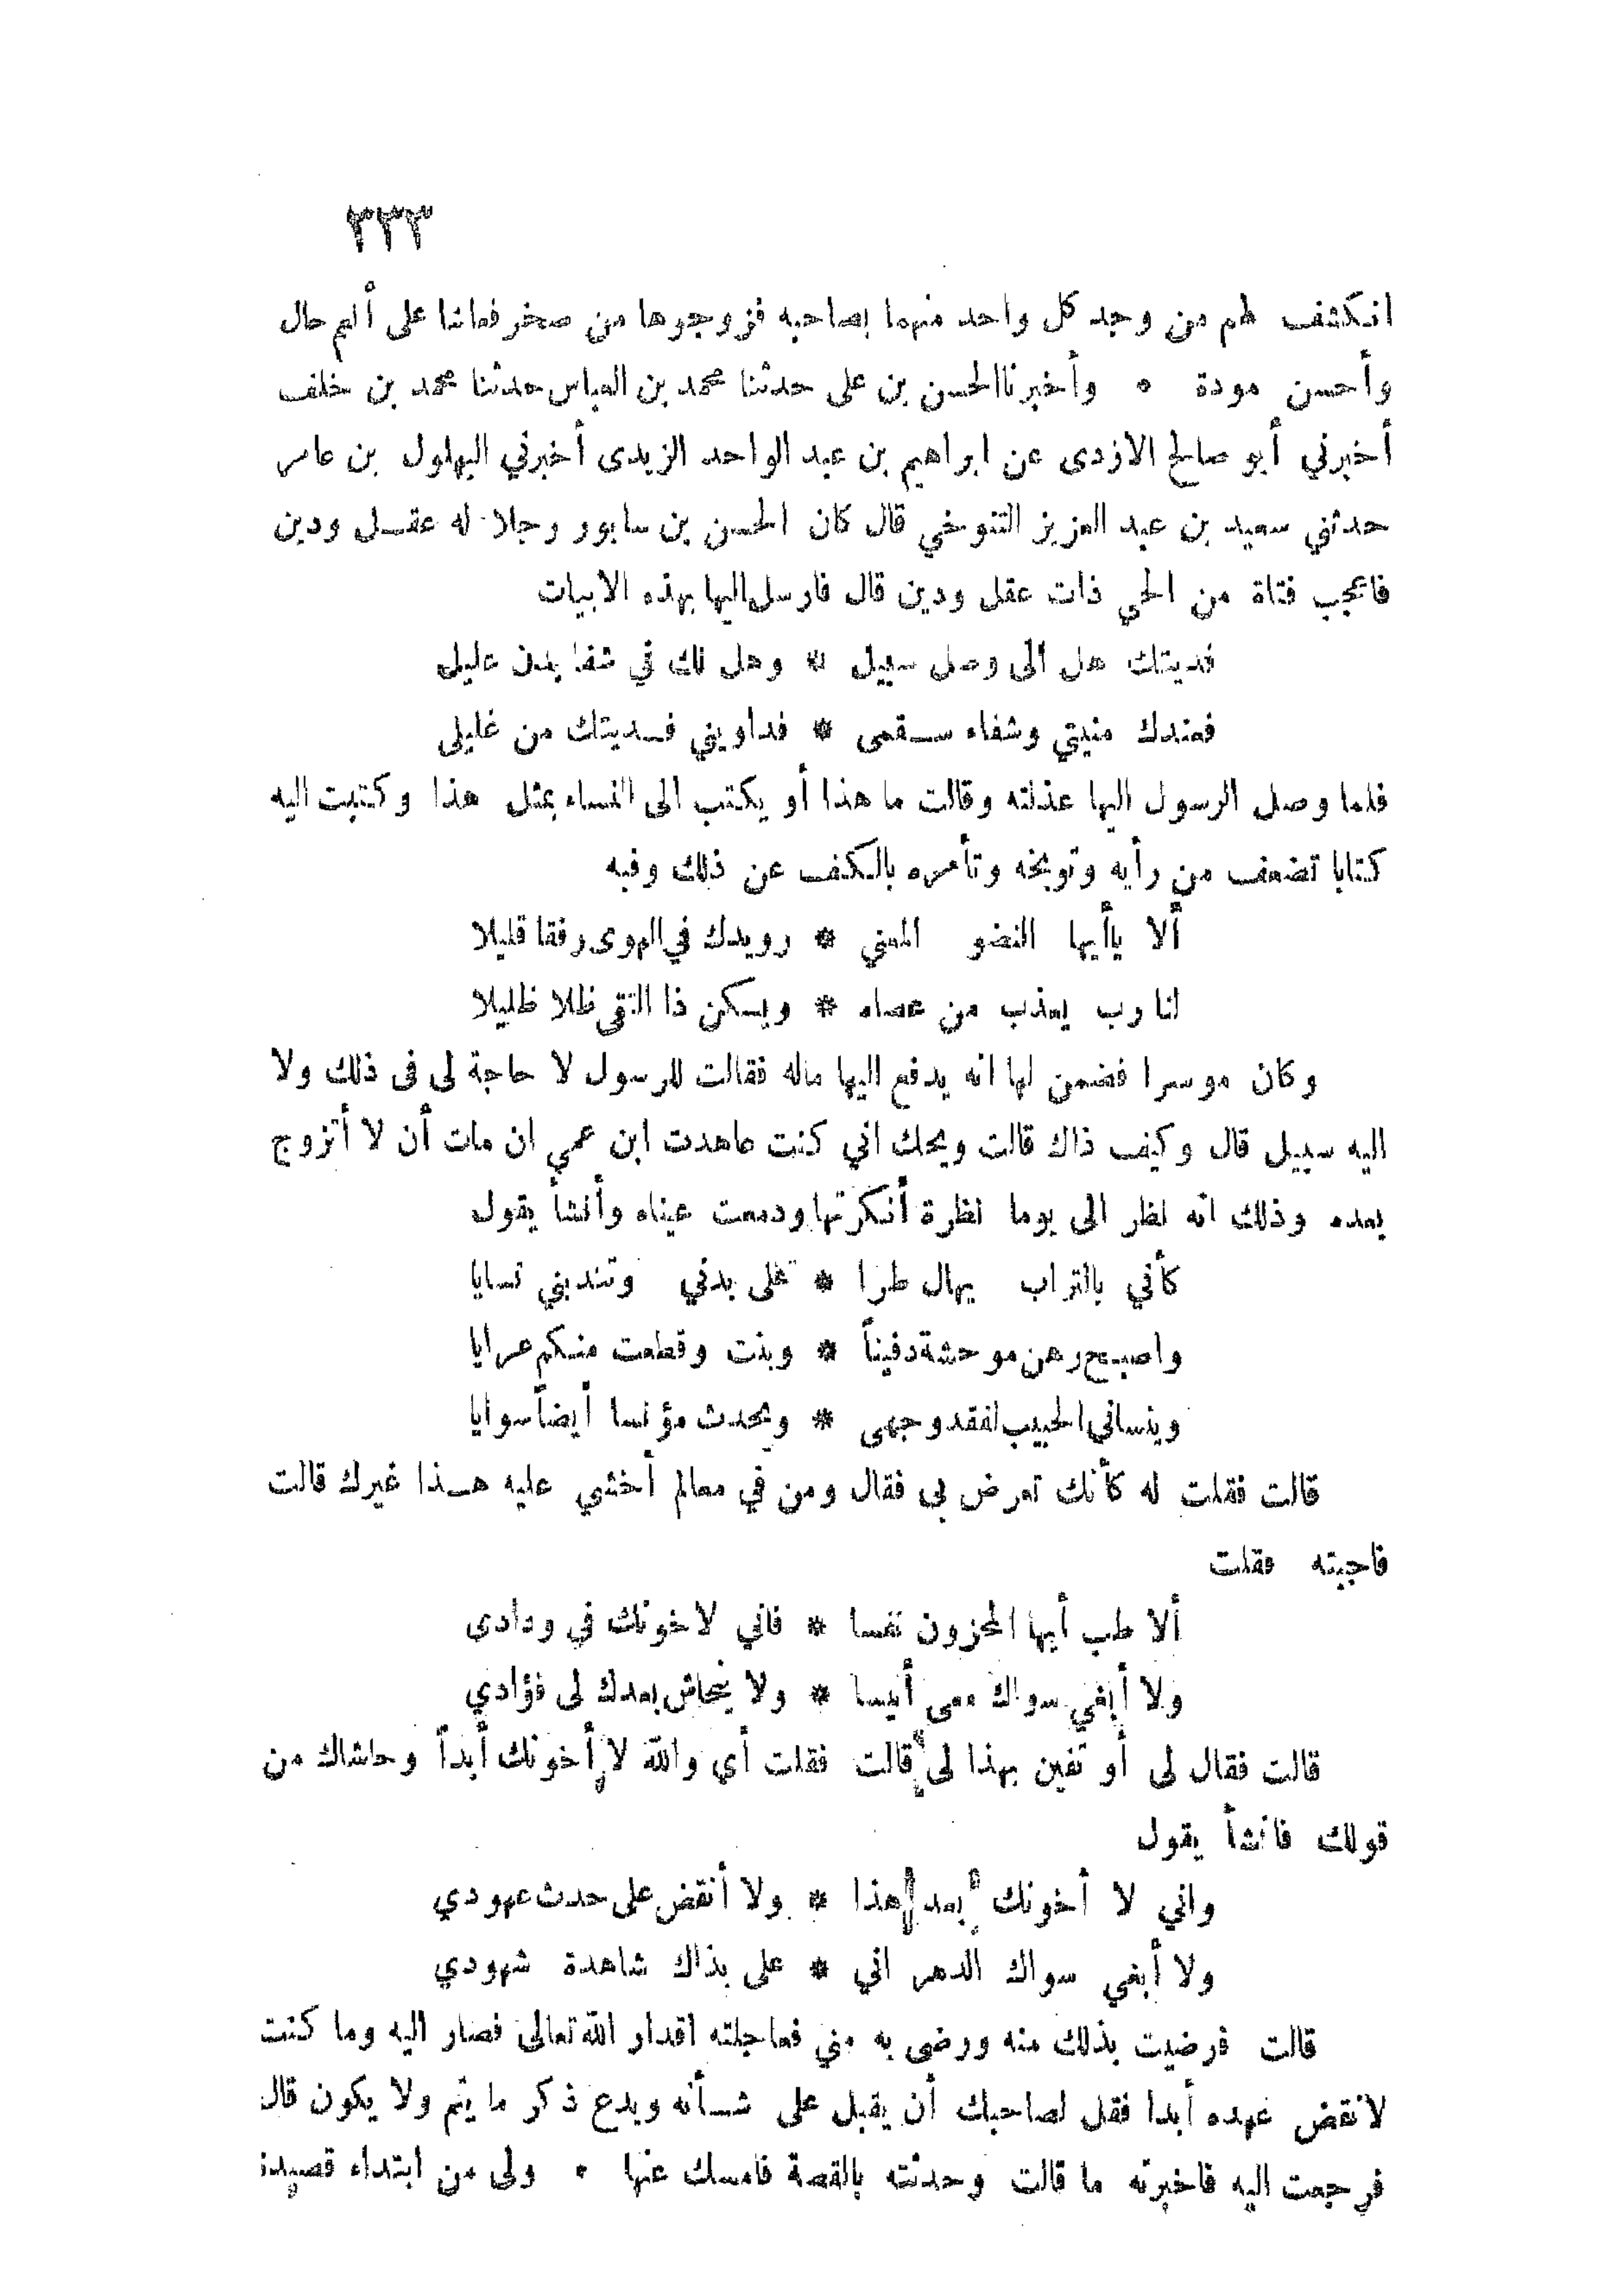 ٣٣٣
انكشف لهم من وجد كل واحد منهما بصاحبه فزوجوها من صخر فعاشا على أنعم حال
وأحسن مودة ٥ وأخبرنا الحسن بن على حدثنا محمد بن العباس حدثنا محمد بن خلف
أخبرني أبو صالح الازدى عن ابراهيم بن عبد الواحد الزيدى أخبرني البهلول بن عامر
حدثني سعيد بن عبد العزيز التنوخي قال كان الحسن بن سابور رجلا له عقل ودين
فاعجب فتاة من الحي ذات عقل ودين قال فارسل اليها بهذه الابيات
فديتك هل الى وصل سبيل * وهل لك في شفا بدن عليل
فعندك منيتي وشفاء سقمى * فداويني فديتك من غليلى
فلما وصل الرسول اليها عذلته وقالت ما هذا أو يكتب الى النساء بمثل هذا وكتبت اليه
كتابا تضعف من رأيه وتوبخه وتأمره بالكف عن ذلك وفيه
ألا ياأيها النضو المعني * رويدك في الهوى رفقا قليلا
لنا رب يعذب من عصاه * ويسكن ذا التقى ظلا ظليلا
وكان موسرا فضمن لها انه يدفع اليها ماله فقالت للرسول لا حاجة لى فى ذلك ولا
اليه سبيل قال وكيف ذاك قالت ويحك اني كنت عاهدت ابن عمي ان مات أن لا أتزوج
بعده وذلك انه نظر الى يوما نظرة أنكرتها ودمعت عيناه وأنشأ يقول
كأني بالتراب يهال طرا * على بدني وتندبني نسايا
واصبح رهن موحشة دفيناً * وبنت وقطعت منكم عرايا
وينساني الحبيب لفقد وجهى * ويحدث مؤنسا أيضاً سوايا
قالت فقلت له كأنك تعرض بى فقال ومن في معالم أخشي عليه هذا غيرك قالت
فاجبته فقلت
ألا طب أيها المحزون نفسا * فاني لاخونك في ودادى
ولا أبغي سواك معى أنيسا * ولا ينحاش بعدك لى فؤادي
قالت فقال لى أو تفين بهذا لى قالت فقلت أي والله لا أخونك أبداً وحاشاك من
قولك فانشأ يقول
واني لا أخونك بعد هذا * ولا أنقض على حدث عهودي
ولا أبغي سواك الدهر اني * على بذاك شاهدة شهودي
قالت فرضيت بذلك منه ورضى به مني فعاجلته اقدار الله تعالى فصار اليه وما كنت
لانقض عهده أبدا فقل لصاحبك أن يقبل على شأنه ويدع ذكر ما يتم ولا يكون قال
فرجعت اليه فاخبرته ما قالت وحدثته بالقصة فامسك عنها ٠ ولى من ابتداء قصيدة